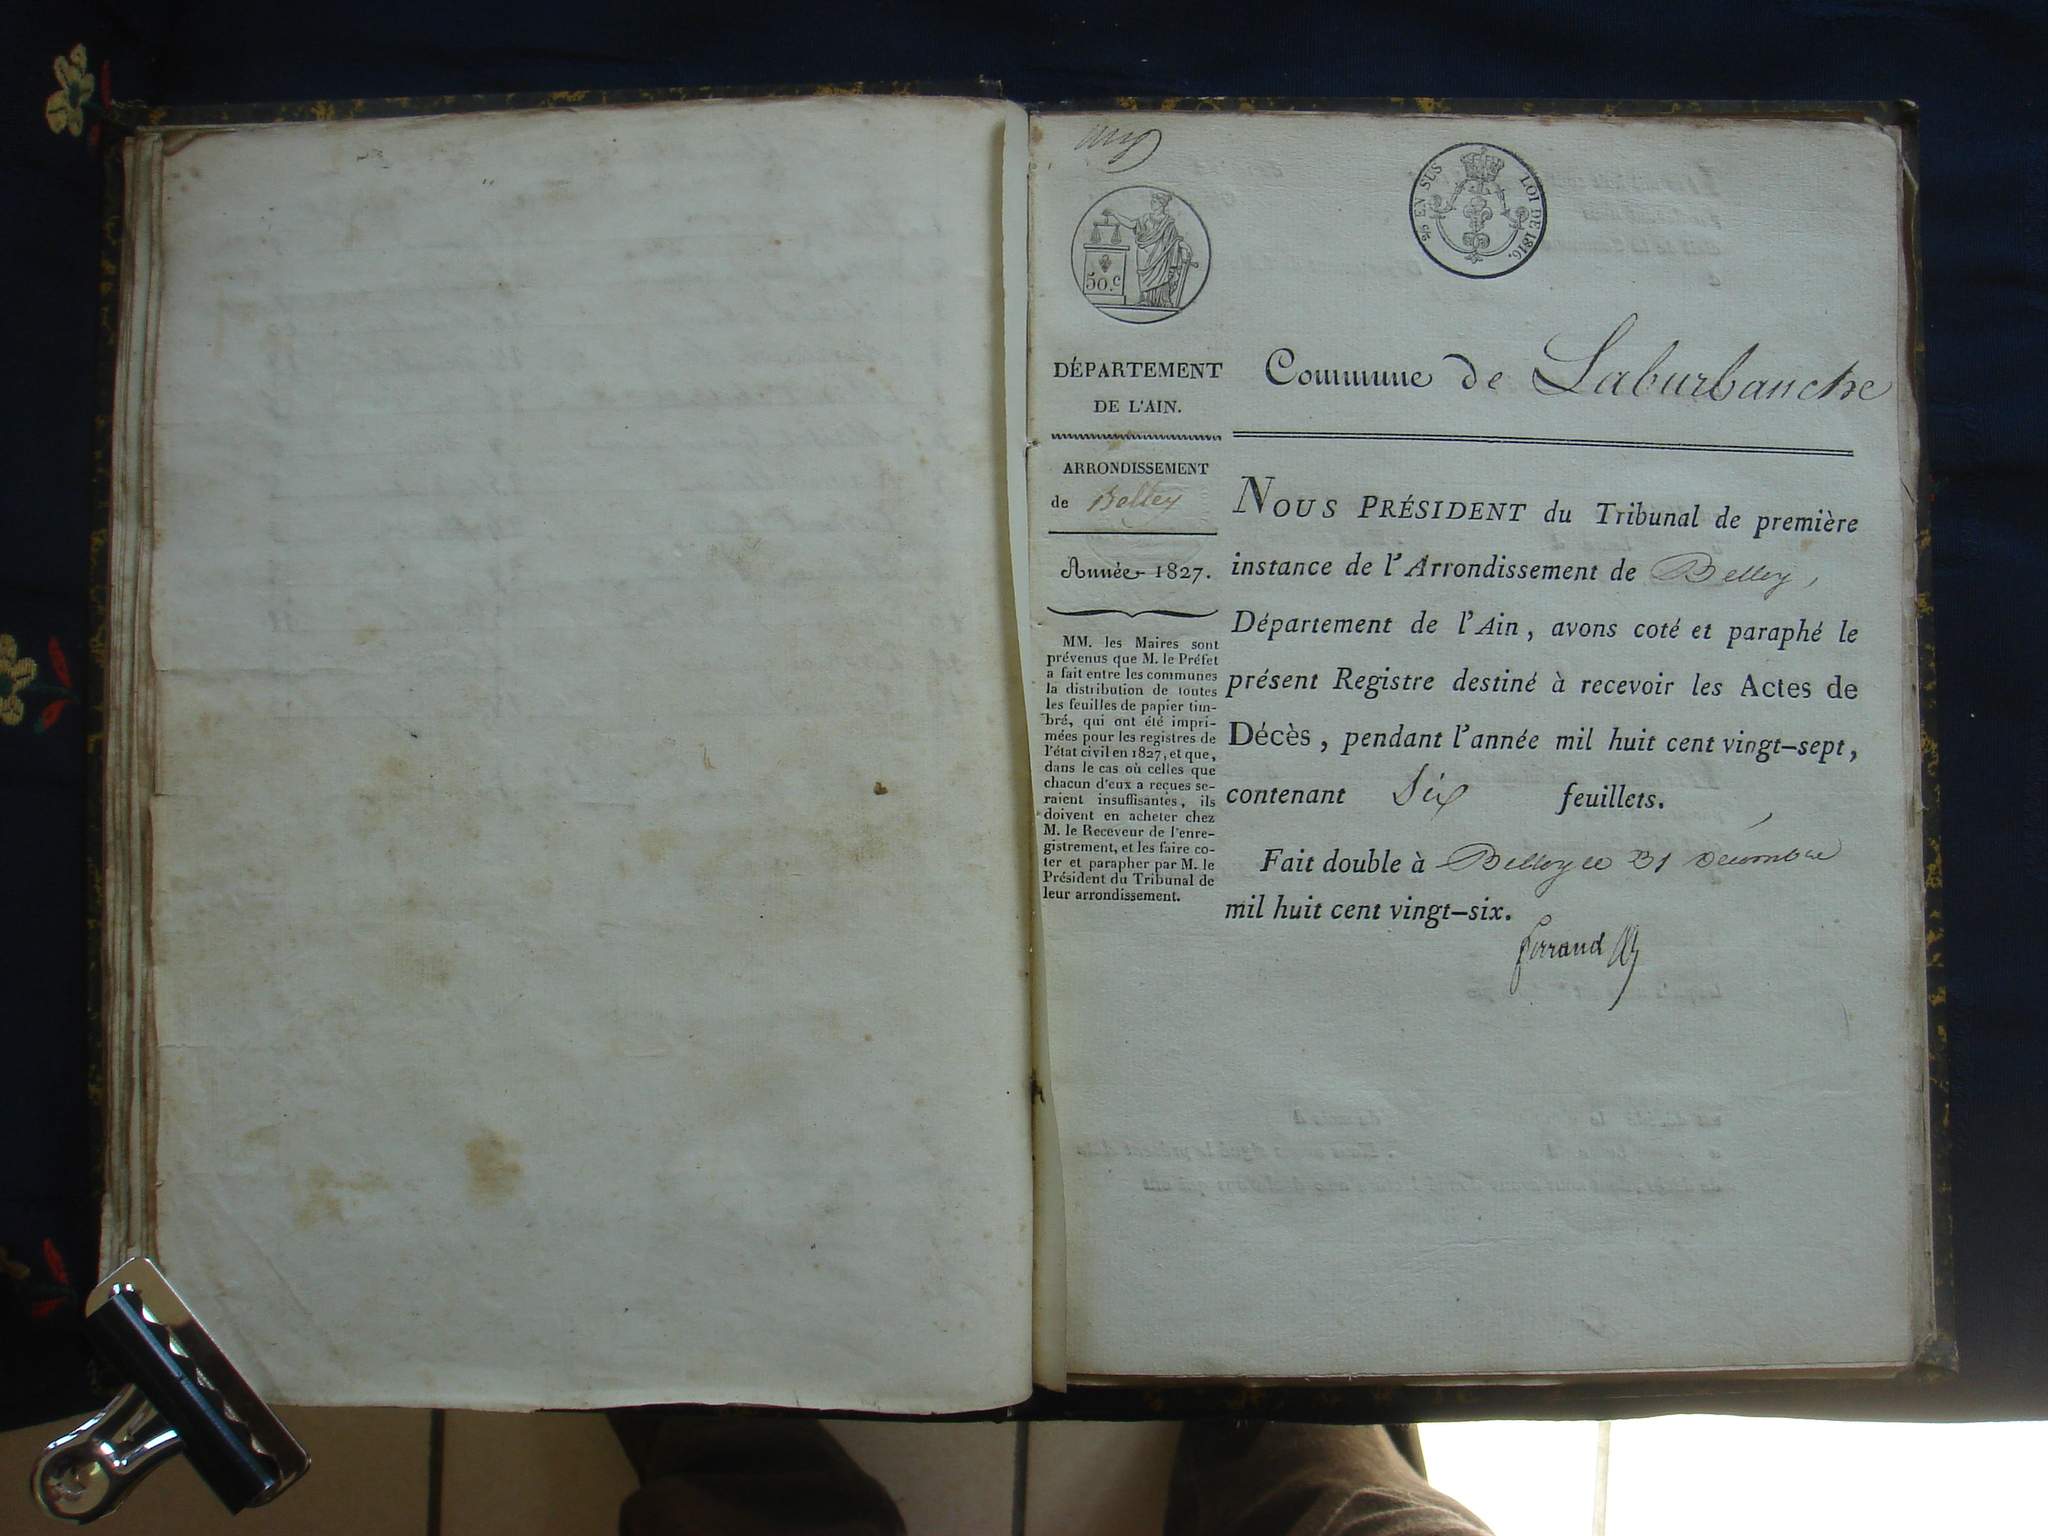 50.c
EN SUS
LOI DE 1816.
DÉPARTEMENT
DE L'AIN.
ARRONDISSEMENT
de Belley
Année 1827.
MM. les Maires sont
prévenus que M. le Préfet
a fait entre les communes
la distribution de toutes
les feuilles de papier tim-
bré, qui ont été impri-
mées pour les registres de
l'état civil en 1827, et que,
dans le cas où celles que
chacun d'eux a reçues se-
raient insuffisantes, ils
doivent en acheter chez
M. le Receveur de l'enre-
gistrement, et les faire co-
ter et parapher par M. le
Président du Tribunal de
leur arrondissement.
Commune de Laburbanche
NOUS PRÉSIDENT du Tribunal de première
instance de l'Arrondissement de Belley,
Département de l'Ain, avons coté et paraphé le
présent Registre destiné à recevoir les Actes de
Décès, pendant l'année mil huit cent vingt-sept,
contenant Six feuillets.
Fait double à Belley le 31 Décembre
mil huit cent vingt-six.
ferrand